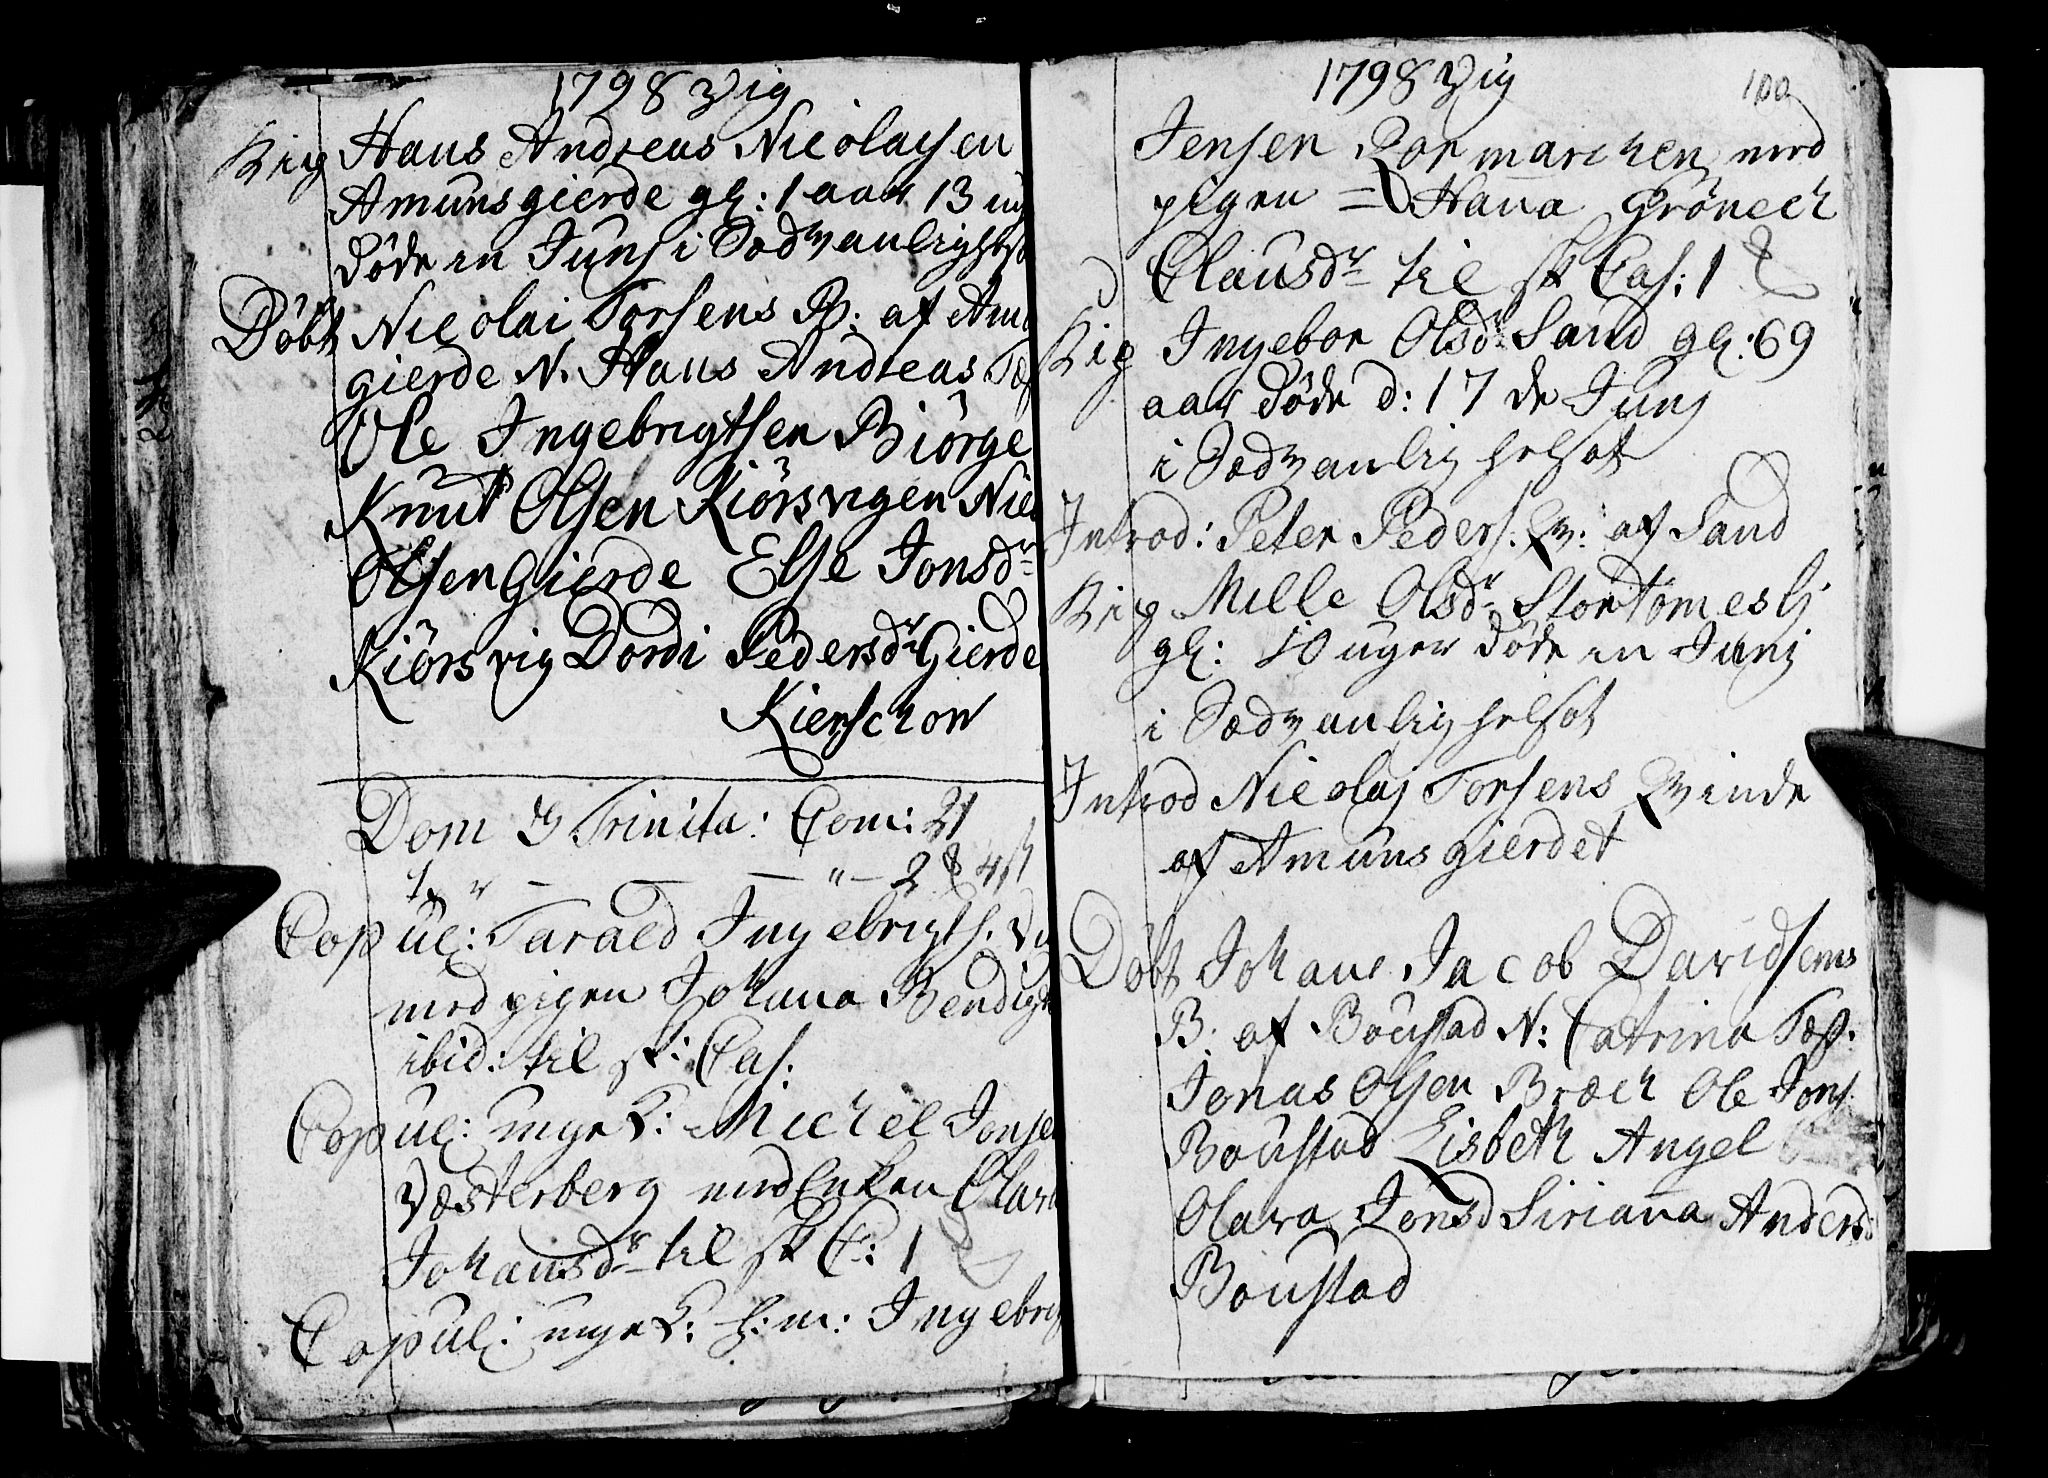 1798 Vig
Kig Hans Andreas Nicolaysen
Amunsgierde gl: 1 aar 13 ug
døde in Junj i Sædvanlig
Døbt Nicolai Torsens B: af Am
gierde N. Hans Andreas
Ole Ingebrigtsen Biørge
Knut Olsen Kiørsvigen Nie
Olsen Gierde Else Jonsdr
Kiørsvig Dordi Pedersdr Gierde
Kierschow
Dom 3 Trinita: Com: 21
2 4
Copul: Tarald Ingebrigts.
med pigen Johana Bendigt
ibid: til sk: Cas.
Copul: unge K: Michel Jonse
Væsterberg med Enken Clara
Johansdr til sk C: 1
Copul: unge K: Ingebrig
1798 Vig
100
Jensen Rormarchen med
pigen = Hana Grönech
Clausdr til sk Cas: 1
Kig Ingebor Olsdr Sand gl: 69
aar døde d: 17 de Junj
i Sædvanlig helsot
Introd: Peter Peders. Qv: af Sand
Kig Mille Olsdr Stortømeslj
gl: 10 uger døde in Junj
i Sædvanlig helsot
Introd Nicolaj Torsens Qvinde
af Amunsgierdet
Døbt Johans Jacob Davidsens
B: af Boustad N: Catrina Tæst.
Jonas Olsen Bræch Ole Jons.
Boustad Lisbeth Angel
Olava Jonsd Siriana Andersd:
Boustad